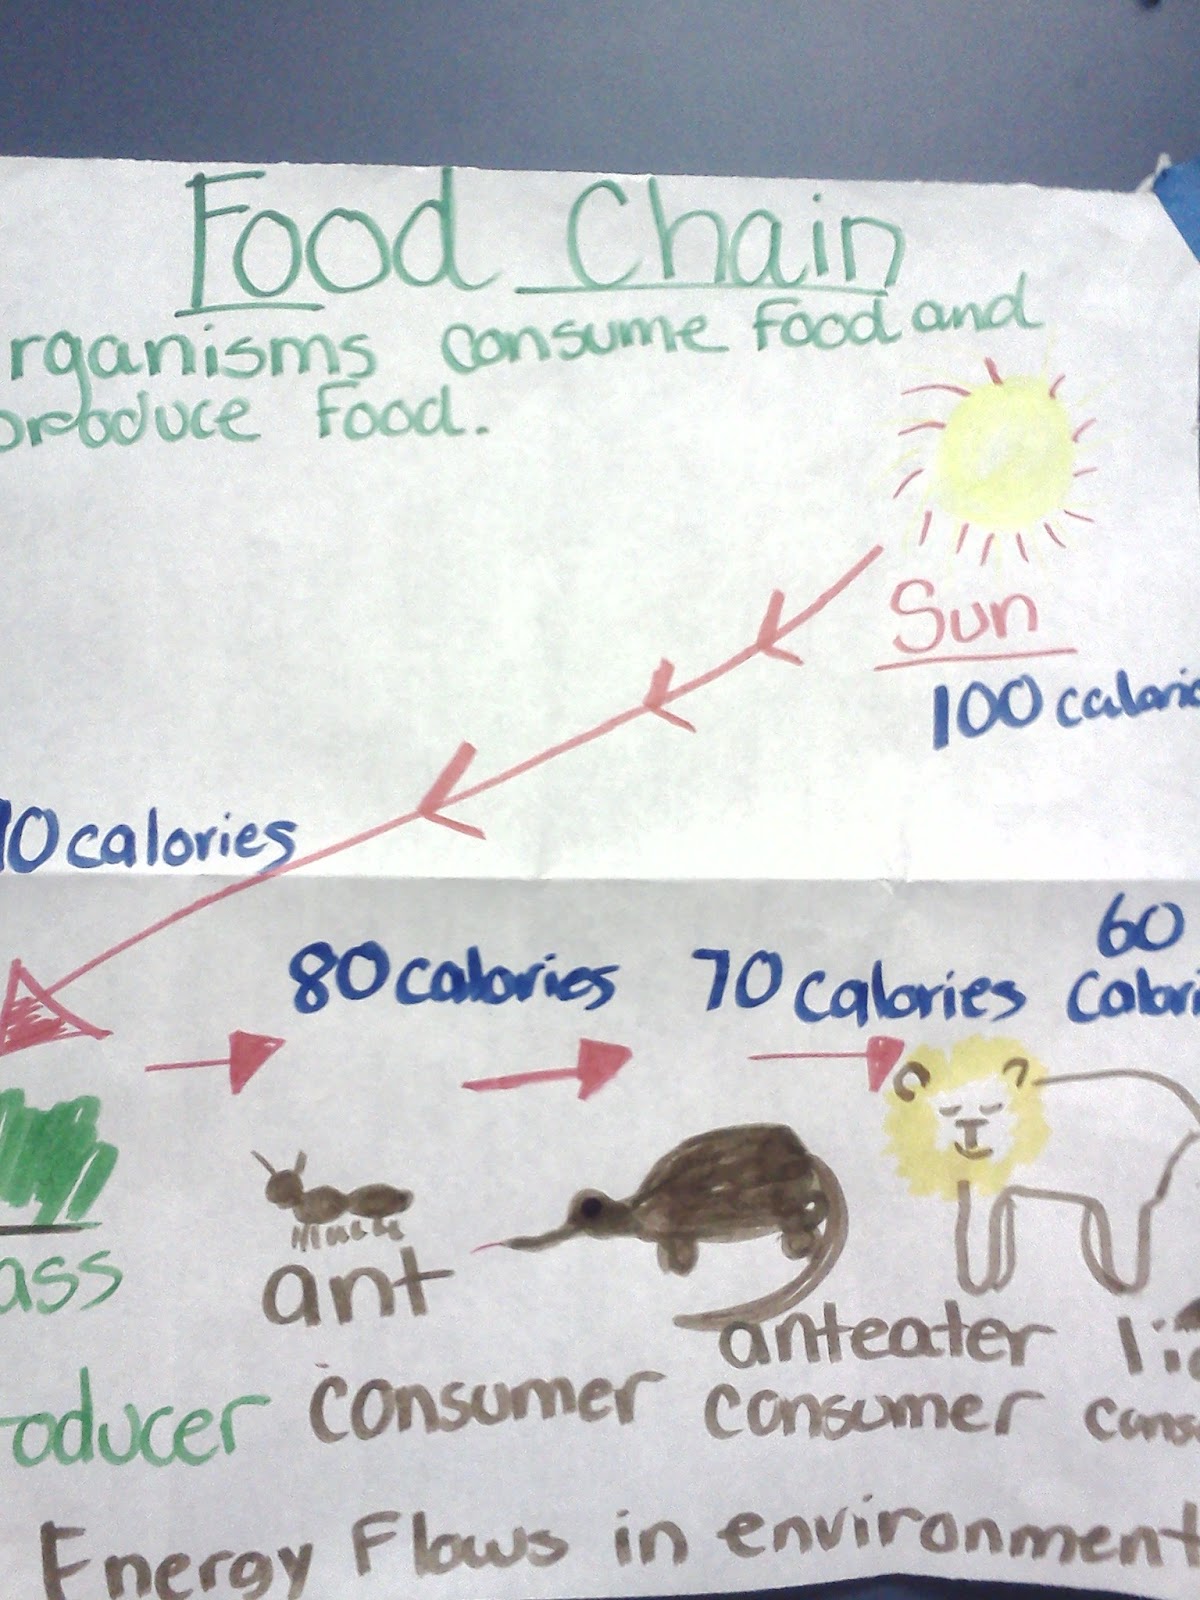 Food Chain
rganisms consume Food and
produce Food.
Sun
100 calorie
10 calories
80 calories
70 calories
60
Calori
ass
ant
anteater
li
oducer
consumer
consumer
cons
Energy Flows in environment